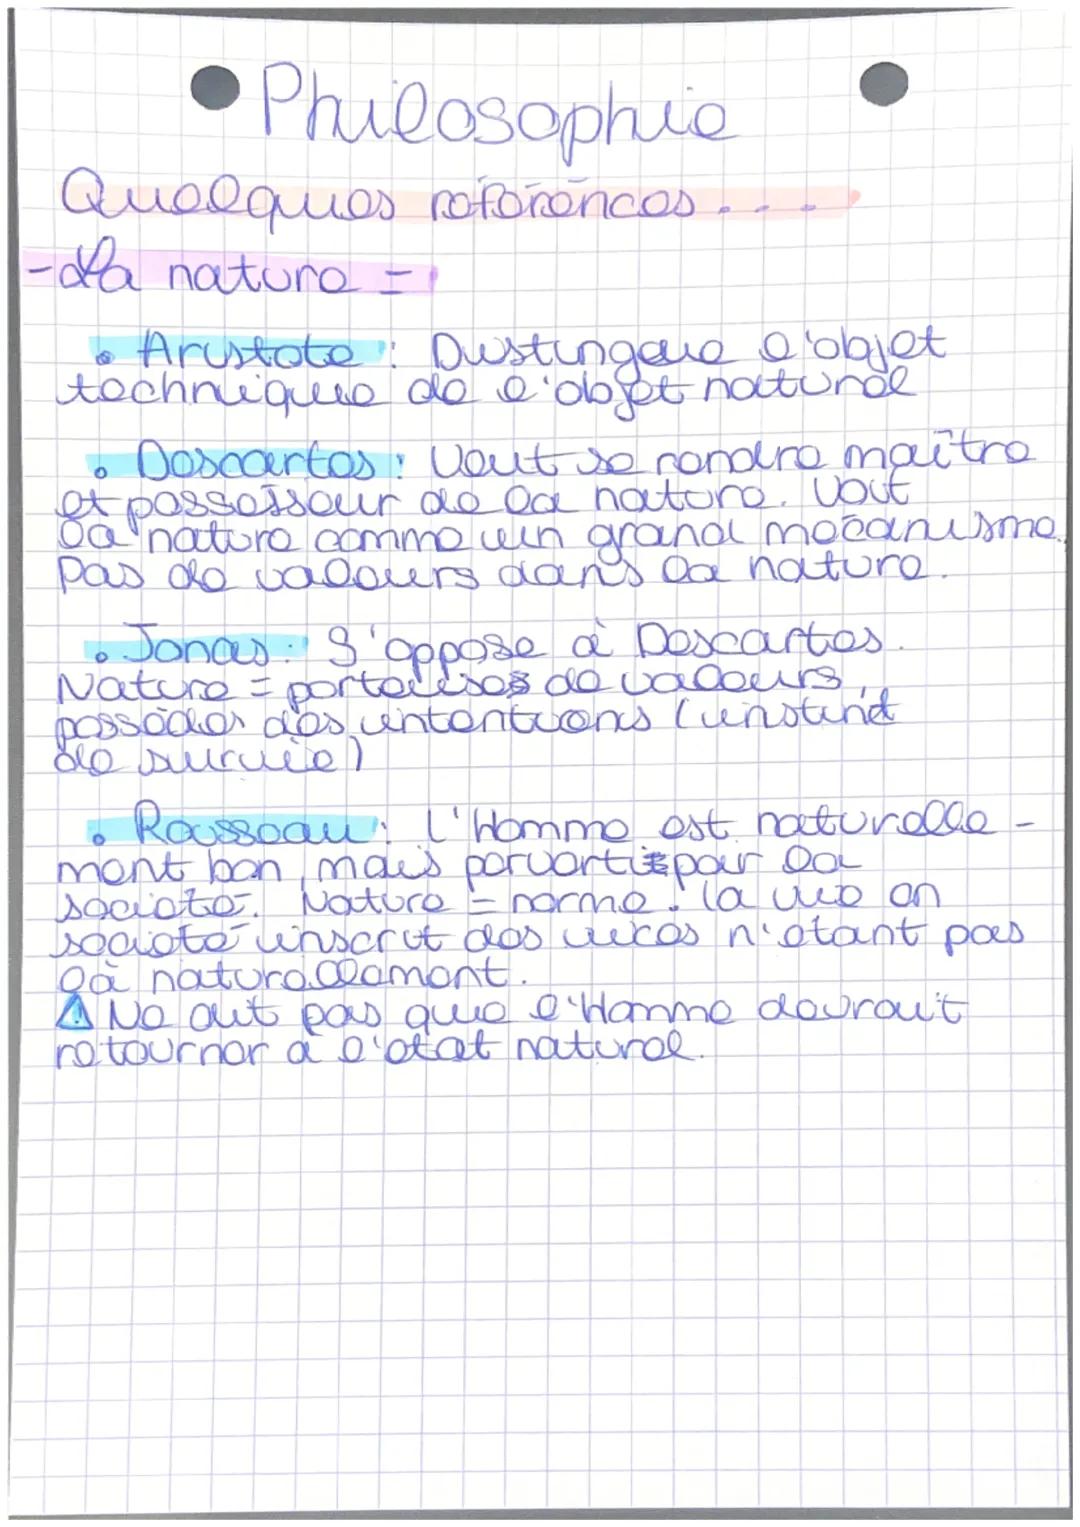 Philosophie
Quelques références....
- La nature =
• Aristote : Distingue l'objet
technique de l'objet naturel
• Descartes : Veut se rendre maître
et possesseur de la nature. Voit
la nature comme un grand mécanisme.
Pas de valeurs dans la nature.
• Jonas : S'oppose à Descartes.
Nature = porteuses de valeurs,
posséder des intentions (instinct
de survie)
• Rousseau : L'Homme est naturelle-
ment bon, mais perverti par la
société. Nature = norme. La vie en
société inscrit des vices n'étant pas
là naturellement.
⚠ Ne dit pas que l'Homme devrait
retourner à l'état naturel.